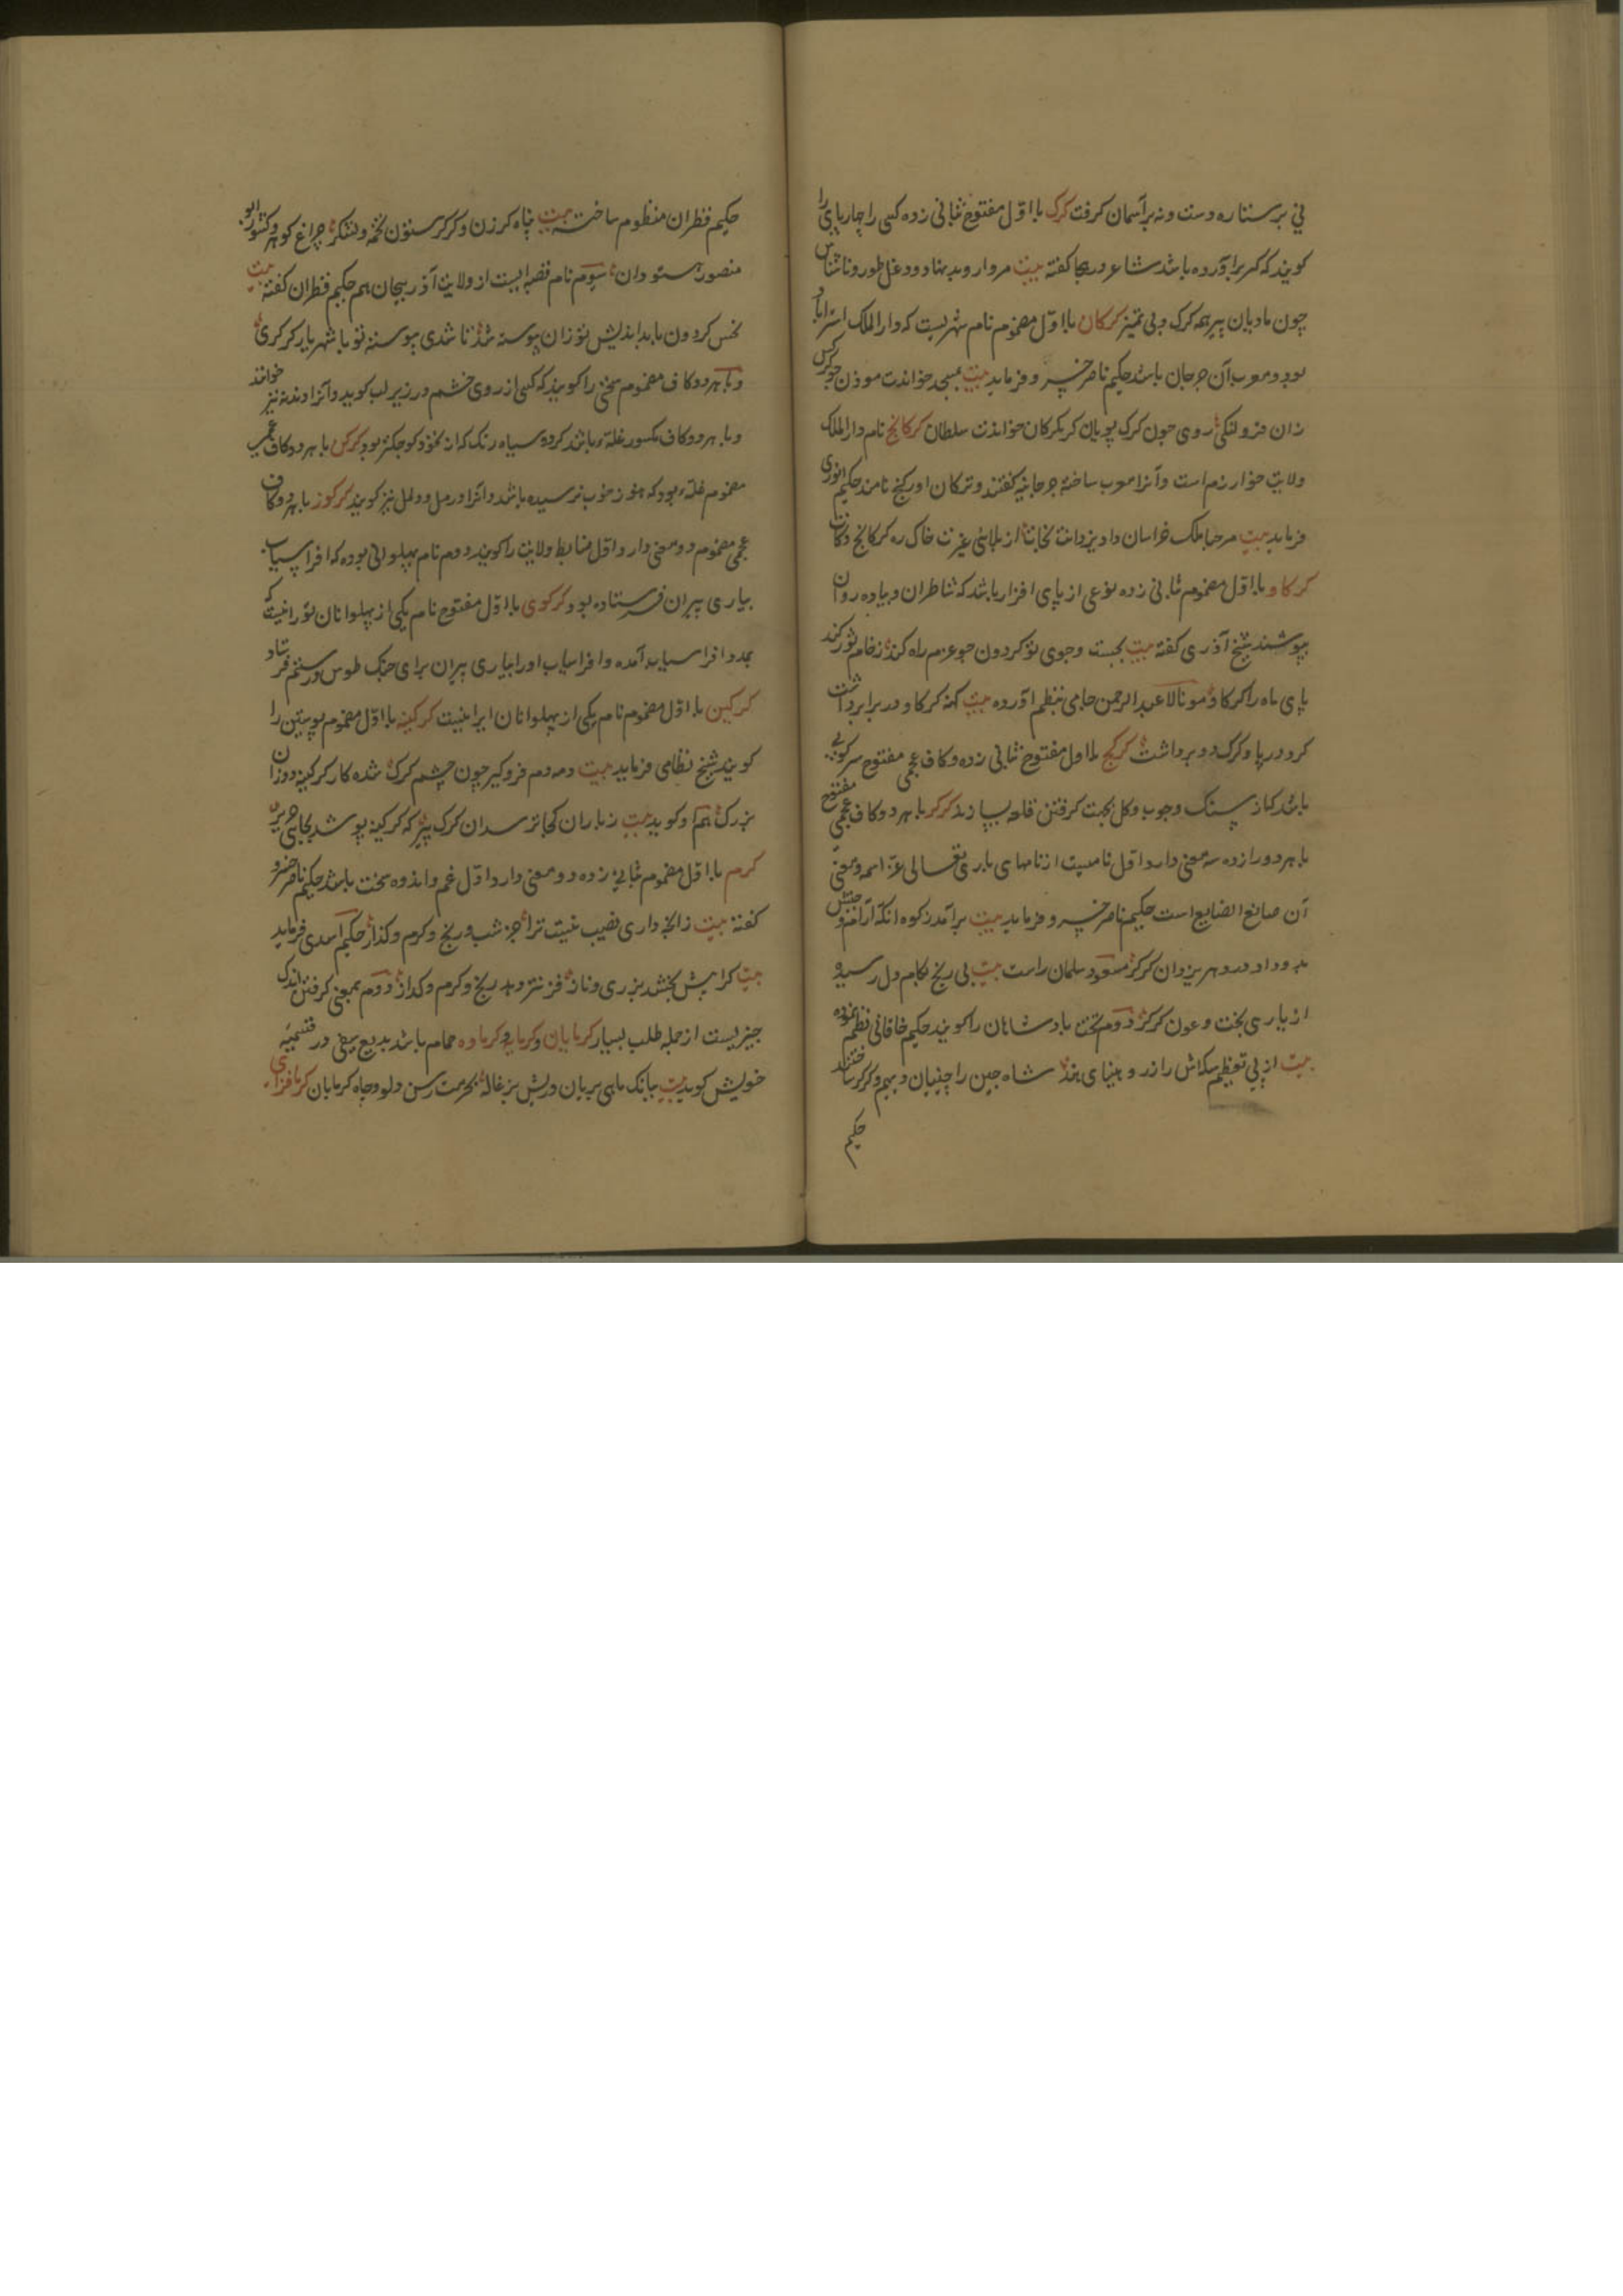 نی بر ستاره دست و نه بر آسمان گرفت کرک با اول مفتوح ثانی زده کسی را چارپای را
کویند که کر برآورده باشد شاعر در هجا کفته بیت
چون مادیان پیر همه کرک و بی تمیز کرکان با اول مضموم نام شهریست که دار الملک استرآباد
بود و معرب آن جرجان باشد حکیم ناصر خسرو فرماید بیت بمسجد خواندت موذن چو کرکس
زان فرو لنکی روی چون کرک پویان کر بکرکان خواندت سلطان کرکانج نام دار الملک
ولایت خوارزم است و آنرا معرب ساخته جرجانیه کفتند و ترکان اورکنج نامند حکیم انوری
فرماید بیت مرحبا ملک خراسان داد یزدانت نجات از بلای غیرت خاک ره کرکانج و کات
کرکاو با اول مضموم ثانی زده نوعی از پای افزار باشد که شاطران و پیاده روان
بپوشند شیخ آذری کفته بیت بجست و جوی تو کردون چو عزم راه کند زخام ثور کند
پای ماه را کرکاو مولانا عبد الرحمن جامی بنظم آورده بیت کهنه کرکاو در برابر داشت
کرد در پا و کرک دو برداشت کرکج با اول مفتوح ثانی زده و کاف عجمی مفتوح سرکوبی
باشد که از سنک و چوب و کل بجهت کرفتن قلعه بسازند کرکر با هر دو کاف عجمی مفتوح
با هر دو را زده سه معنی دارد اول نامیست از نامهای باری تعالی عز اسمه و معنی
آن صانع الصنایع است حکیم ناصر خسرو فرماید بیت برآمد زکوه آنکه آرام و جنبش
بدو داد در دهر یزدان کرکر مسعود سلمان راست بیت بی رنج بکام دل رسید و
از یاری بخت و عون کرکر دوم تخت پادشاهان را کویند حکیم خاقانی نظم نموده
بیت از پی تعظیم سکه‌اش را در و مینای هند شاه چین را چینیان دیهیم و کرکر ساختند
حکیم
حکیم قطران منظوم ساخته بیت پناه کرزن و کرکر ستون تخمه و لشکر چراغ کوهر و کشور ابو
منصور دان سوم نام قصبه ایست از ولایت آذربیجان هم حکیم قطران کفته بیت
نحس کردون با بد اندیش تو زان پیوسته شد تا شدی پیوسته تو با شهریار کرکری
و با هر دو کاف مضموم سخنی را کویند که کسی از روی خشم در زیر لب کوید و آنرا دندنه نیز خوانند
و با هر دو کاف مکسور غله باشد کرده سیاه رنک که از نخود کوچکتر بود کرکن با هر دو کاف عجمی
مضموم غله بود که هنوز خوب نرسیده باشد و آنرا دلمل نیز کویند کرکوز با هر دو کاف
عجمی مضموم دو معنی دارد اول ضابط ولایت را کویند دوم نام پهلوانی بوده که افراسیاب
بیاری پیران فرستاده بود کرکوی با اول مفتوح نام یکی از پهلوانان تورانیست که
بمدد افراسیاب آمده و افراسیاب او را بیاری پیران برای جنک طوس و رستم فرستاد
کرکین با اول مضموم نام یکی از پهلوانان ایرانیست کرکینه با اول مضموم پوستین را
کویند شیخ نظامی فرماید بیت دمه دم فرو کیر چون چشم کرک شده کار کرکینه دوزان
بزرک هم او کوید بیت زباران کجا ترسد آن کرک پیر که کرکینه پوشد بجای حریر
کرم با اول مضموم ثانی زده دو معنی دارد اول غم و اندوه سخت باشد حکیم ناصر خسرو
کفته بیت زآنچه داری نصیب نیست ترا جز شب و رنج و کرم و کداز حکیم اسدی فرماید
بیت کرا بیش بخشد بزرکی و ناز فزونتر دهد رنج و کرم و کداز دوم بمعنی کرفتن اندک
چیزیست از جمله طلب بسیار کرمابان و کرمابه و کرماوه حمام باشد بدیع سیفی در قسمیه
خویش کوید بیت ببانک ماهی بریان و ریش بزغاله بحرمت رسن و دلو و چاه کرمابان کرم افزای